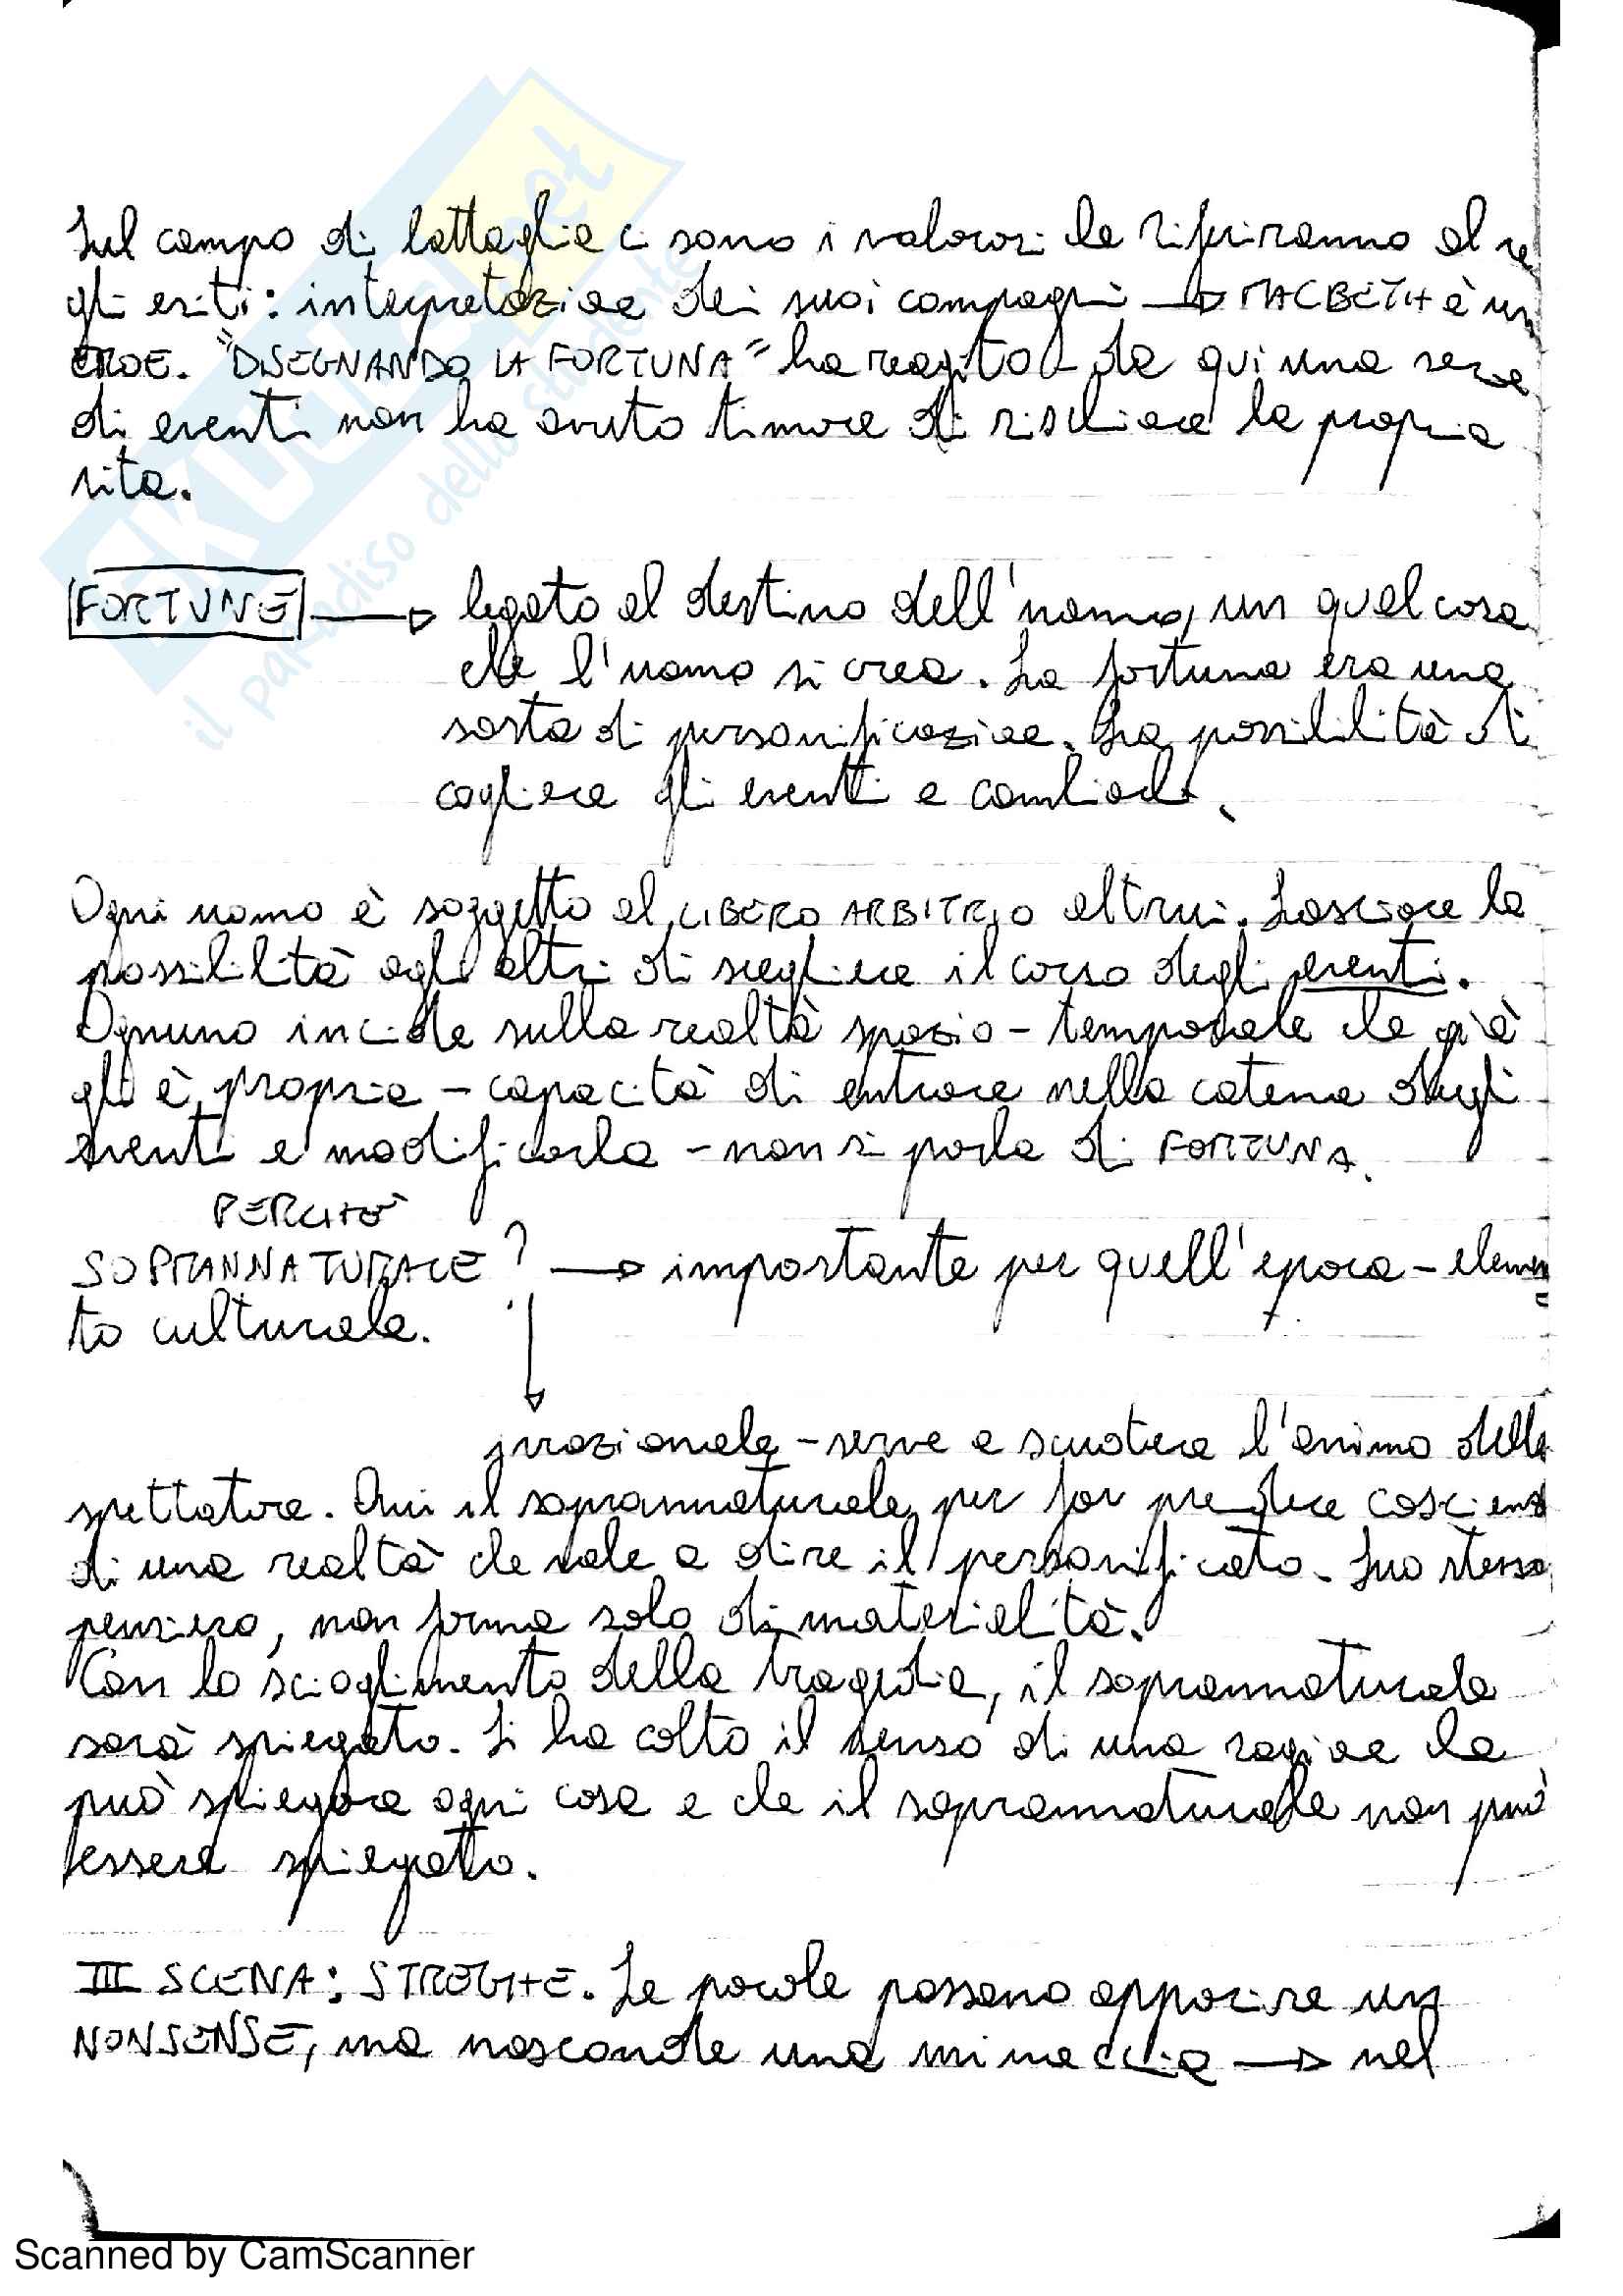 Sul campo di battaglia ci sono i valorosi che riferiranno al re
gli esiti: interpretazione dei suoi compagni → MACBETH è un
EROE. "DISEGNANDO LA FORTUNA" ha reagito da qui una serie
di eventi non ha avuto timore di rischiare la propria
vita.
FORTUNE → legato al destino dell'uomo, un qualcosa
che l'uomo si crea. La fortuna era una
sorta di personificazione. La possibilità di
cogliere gli eventi e cambiarli.
Ogni uomo è soggetto al LIBERO ARBITRIO altrui. Lasciare la
possibilità agli altri di scegliere il corso degli eventi.
Ognuno incide sulla realtà spazio-temporale che già
gli è propria - capacità di entrare nella catena degli
eventi e modificarla - non si parla di FORTUNA.
PERCHÉ
SOPRANNATURALE? → importante per quell'epoca - elemen
to culturale.
irrazionale - serve a scuotere l'animo dello
spettatore. Qui il soprannaturale per far prendere coscienza
di una realtà che vale a dire il personificato. Suo stesso
pensiero, non forma solo di materialità.
Con lo scioglimento della tragedia, il soprannaturale
sarà spiegato. Si ha colto il senso di una ragione che
può spiegare ogni cosa e che il soprannaturale non può
essere spiegato.
III SCENA: STREGHE. Le parole possono apparire un
NONSENSE, ma nasconde una minaccia → nel
SKUOLA.net
il paradiso dello studente
Scanned by CamScanner